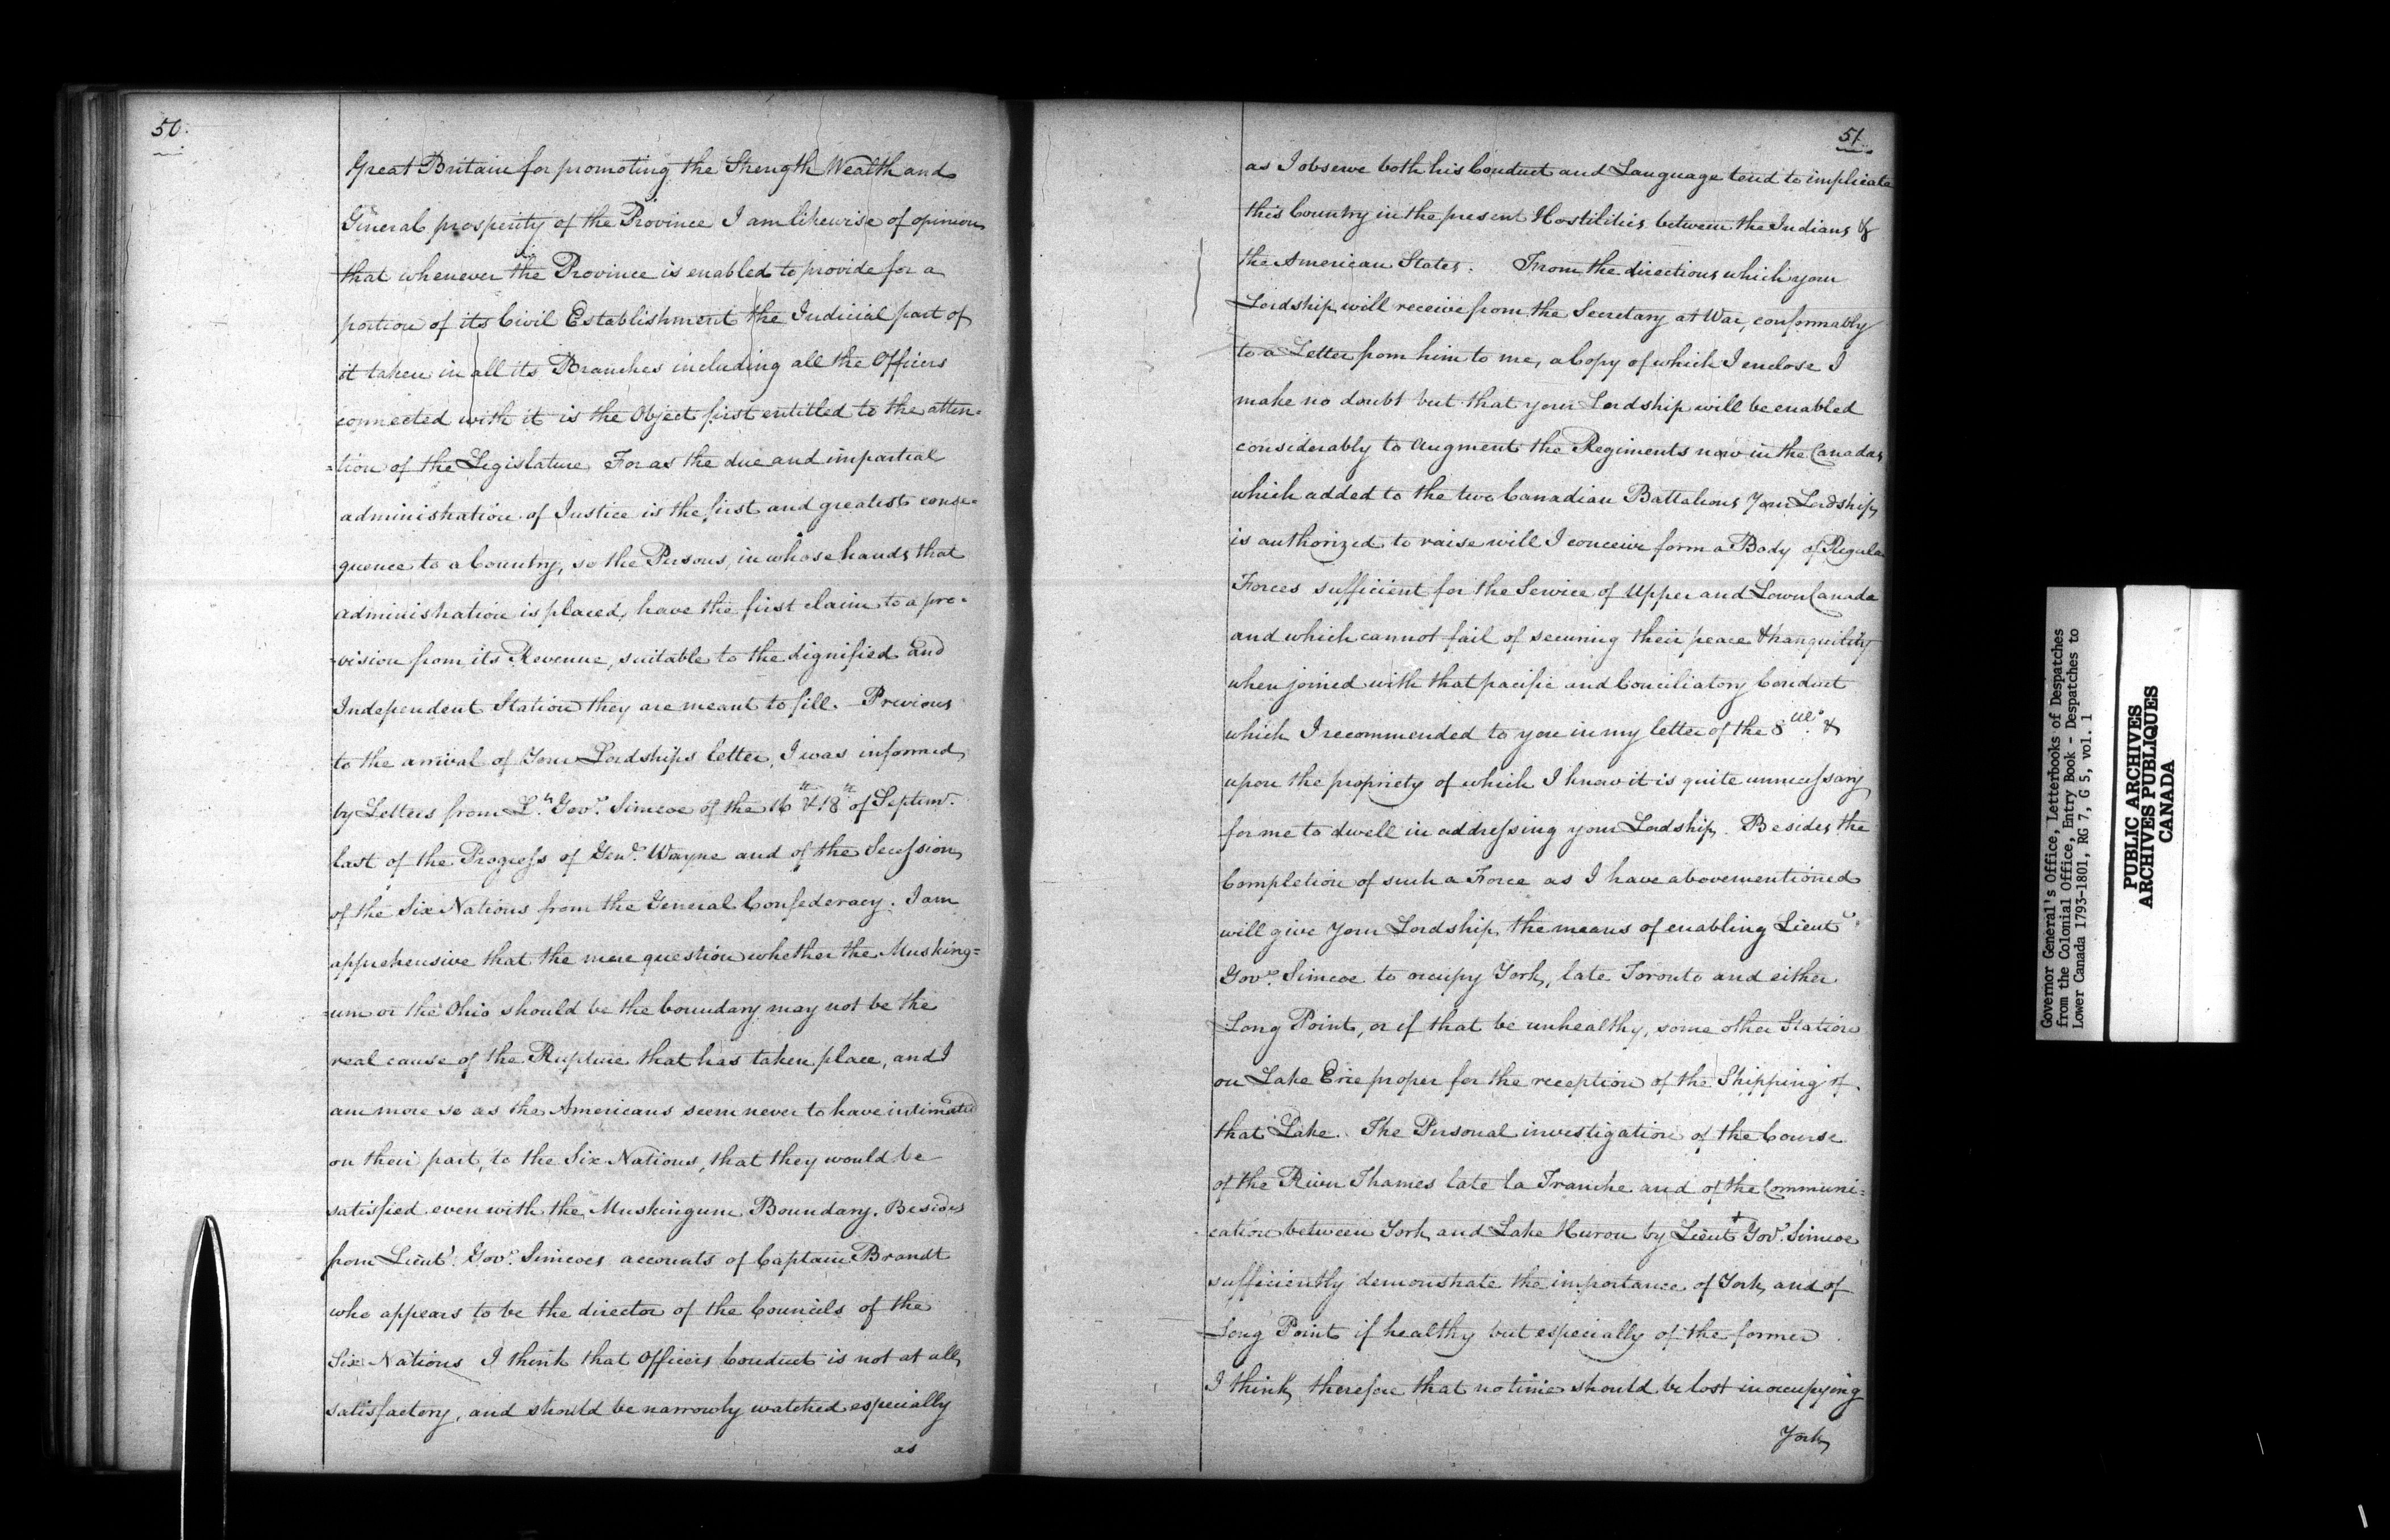 50.
Great Britain for promoting the Strength Wealth and
General prosperity of the Province I am likewise of opinion
that whenever the Province is enabled to provide for a
portion of its Civil Establishment the Judicial part of
it taken in all its Branches including all the Officers
connected with it is the Object first entitled to the atten-
=tion of the Legislature For as the due and impartial
administration of Justice is the first and greatest conse-
quence to a Country, so the Persons, in whose hands that
administration is placed, have the first claim to a pro-
-vision from its Revenue, suitable to the dignified and
Independent Station they are meant to fill. Previous
to the arrival of Your Lordships letter, I was informed
by Letters from Lt. Govr. Simcoe of the 16th & 18th of Septemr.
last of the Progress of Genl. Wayne and of the Secession
of the Six Nations from the General Confederacy. I am
apprehensive that the mere question whether the Musking=
=um or the Ohio should be the boundary may not be the
real cause of the Rupture that has taken place, and I
am more so as the Americans seem never to have intimated
on their part, to the Six Nations, that they would be
satisfied even with the Muskingum Boundary. Besides
from Lieut. Govr. Simcoes accounts of Captain Brandt
who appears to be the director of the Councils of the
Six Nations I think that Officers Conduct is not at all
satisfactory, and should be narrowly watched especially
as
51.
as I observe both his Conduct and Language tend to implicate
this Country in the present Hostilities between the Indians &
the American States. From the directions which your
Lordship will receive from the Secretary at War, conformably
to a Letter from him to me, a Copy of which I enclose I
make no doubt but that your Lordship will be enabled
considerably to augment the Regiments now in the Canadas
which added to the two Canadian Battalions Your Lordship
is authorized to raise will I conceive form a Body of Regular
Forces sufficient for the Service of Upper and Lower Canada
and which cannot fail of securing their peace & tranquility
when joined with that pacific and Conciliatory Conduct
which I recommended to you in my letter of the 8 &
upon the propriety of which I know it is quite unnecessary
for me to dwell in addressing your Lordship. Besides the
Completion of such a Force as I have abovementioned
will give Your Lordship the means of enabling Lieut.
Govr. Simcoe to occupy York, late Toronto and either
Long Point, or if that be unhealthy, some other Station
on Lake Erie proper for the reception of the Shipping of
that Lake. The Personal investigation of the Course
of the River Thames late la Tranche and of the Communi=
-cation between York and Lake Huron by Lieut Govr. Simcoe
sufficiently demonstrate the importance of York, and of
Long Point if healthy but especially of the former
I think, therefore that no time should be lost in occupying
York,
Governor General's Office, Letterbooks of Despatches
from the Colonial Office, Entry Book - Despatches to
Lower Canada 1793-1801, RG 7, G 5, vol. 1
PUBLIC ARCHIVES
ARCHIVES PUBLIQUES
CANADA